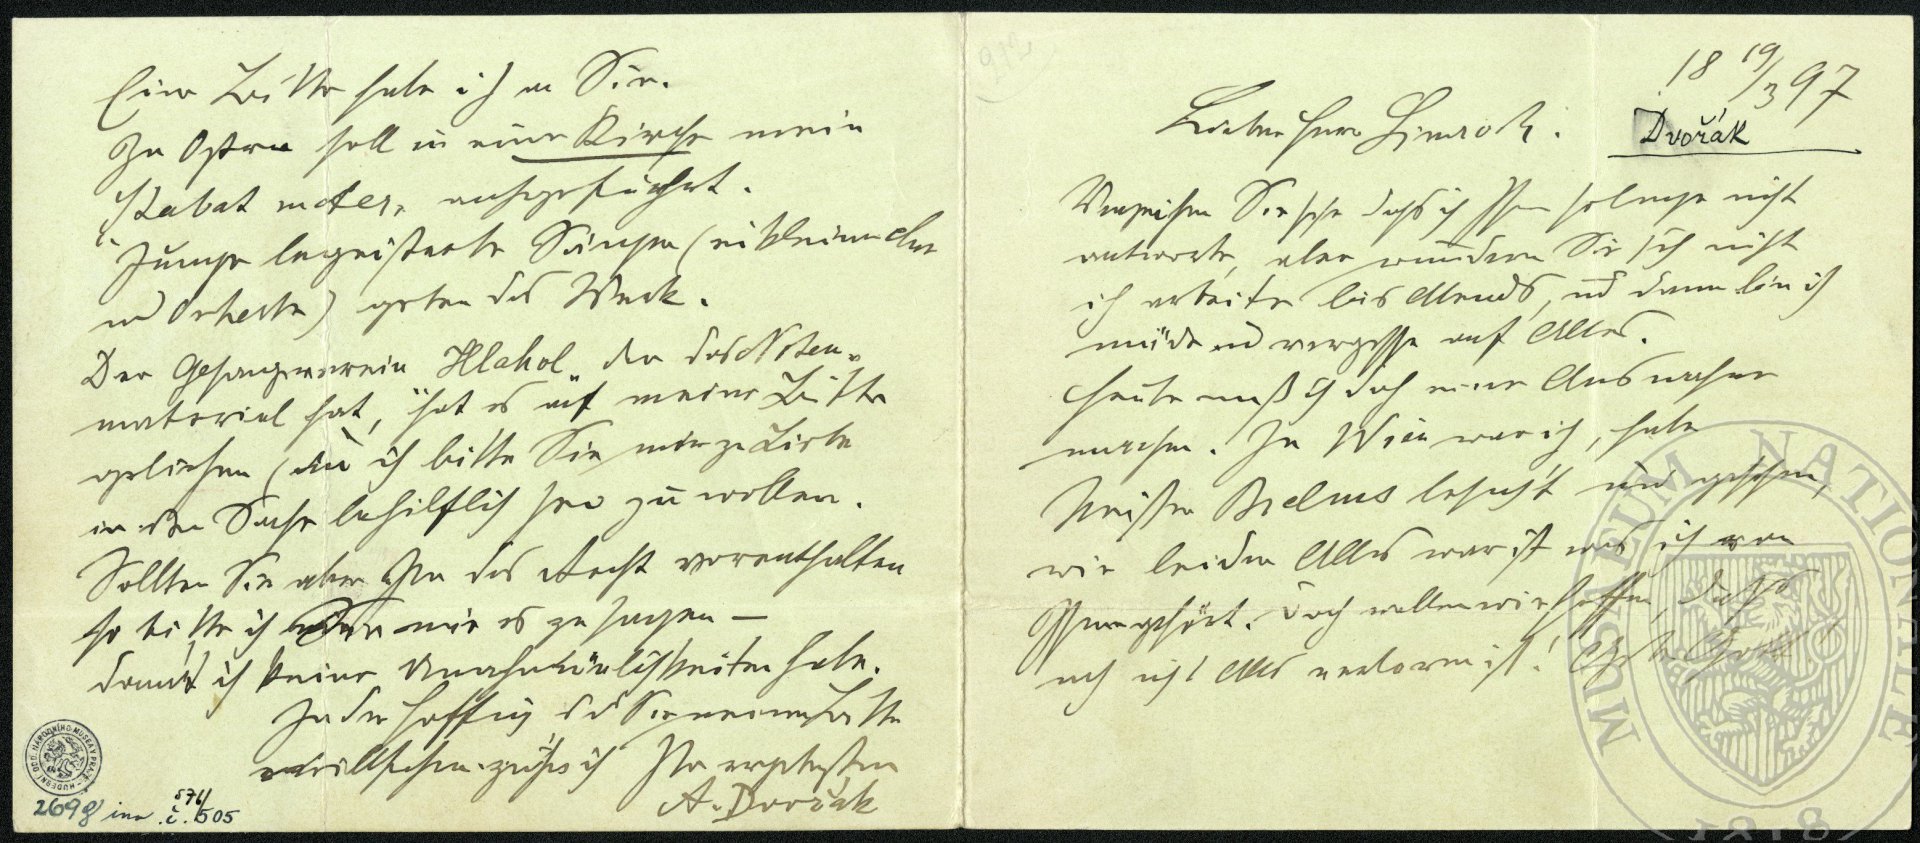 18 19/3 97
Dvořák
Lieber Herr Simrock!
Verzeihen Sie sehr dass ich Ihnen so lange nicht
antworte, aber wundern Sie sich nicht
ich arbeite bis Abends, und dann bin ich
müde und vergesse auf Alles.
Heute muß ich doch eine Ausnahme
machen. In Wien war ich, habe
Meister Brahms besucht und gesehen,
wie leider Alles war ist was ich von
Ihnen gehört. Doch wollen wir hoffen, dass
noch nicht Alles verloren ist! Gott
Eine Bitte habe ich an Sie.
Zu Ostern soll in einer Kirche mein
"Stabat mater" aufgeführt.
Junge begeisterte Sänger (ein kleiner Chor
und Orchester) geben das Werk.
Der Gesangverein "Hlahol" der das Noten-
material hat, hat es auf meine Bitte
geliehen ich bitte Sie mir zu Liebe
in der Sache behilflich sein zu wollen.
Sollten Sie aber Ihr das Recht vorenthalten
so bitte ich mir es zu sagen —
damit ich keine Unannehmlichkeiten habe.
In der Hoffnung, das Sie meine Bitte
willfahren grüße ich Ihr ergebenster
A. Dvořák
HUDEBNÍ ODD. NÁRODNÍHO MUSEA V PRAZE
2698 inv. č. 576/505
MUSAEUM NATIONALE
1818